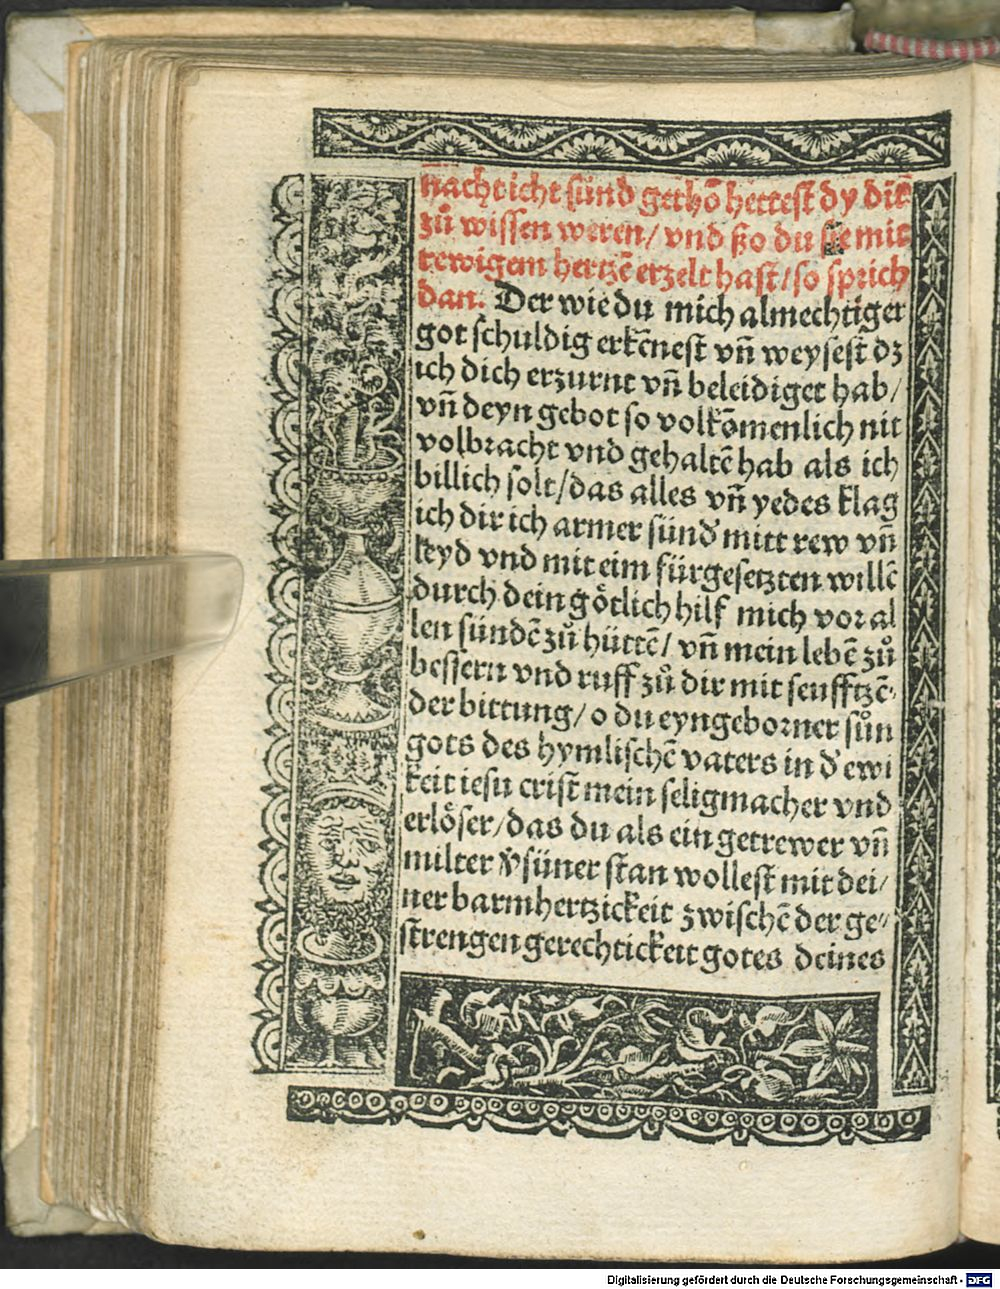 nacht icht sünd gethō hettest dy dir
zů wissen weren/ vnd ßo du sie mit
rewigem hertzē erzelt hast/ so sprich
dan. Der wie du mich almechtiger
got schuldig erkēnest vn̄ weysest dz
ich dich erzurnt vn̄ beleidiget hab/
vn̄ deyn gebot so volkōmenlich nit
volbracht vnd gehaltē hab als ich
billich solt/ das alles vn̄ yedes klag
ich dir ich armer sünd' mitt rew vn̄
leyd vnd mit eim fürgesetzten willē
durch dein götlich hilf mich vor al
len sündē zů hüttē/ vn̄ mein lebē zů
bessern vnd ruff zů dir mit seufftzē-
der bittung/ o du eyngeborner sůn
gots des hymlischē vaters in d' ewi
keit iesu crist mein seligmacher vnd
erlöser/ das du als ein getrewer vn̄
milter v̓süner stan wollest mit dei/
ner barmhertzickeit zwischē der ge/
strengen gerechtickeit gotes deines
Digitalisierung gefördert durch die Deutsche Forschungsgemeinschaft - DFG